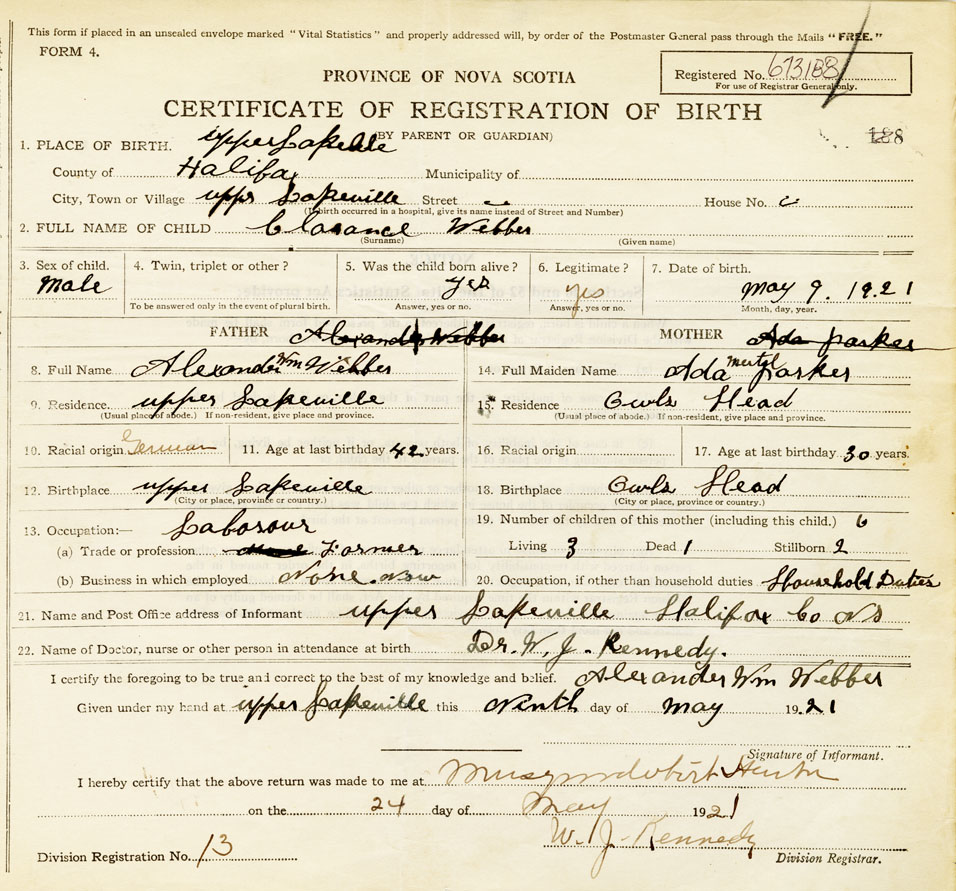 This form if placed in an unsealed envelope marked "Vital Statistics" and properly addressed will, by order of the Postmaster General pass through the Mails "FREE."
FORM 4.
PROVINCE OF NOVA SCOTIA
Registered No. 673188
For use of Registrar General only.
CERTIFICATE OF REGISTRATION OF BIRTH
(BY PARENT OR GUARDIAN)
188
1. PLACE OF BIRTH. upper Lakeville
County of Halifax Municipality of
City, Town or Village upper Lakeville Street House No.
(If birth occurred in a hospital, give its name instead of Street and Number)
2. FULL NAME OF CHILD Clarance Webber
(Surname) (Given name)
3. Sex of child. 4. Twin, triplet or other? 5. Was the child born alive? 6. Legitimate? 7. Date of birth.
Male yes yes May 9. 1921
To be answered only in the event of plural birth. Answer, yes or no. Answer, yes or no. Month, day, year.
FATHER Alexander Webber MOTHER Ada parker
8. Full Name Alexander Wm Webber 14. Full Maiden Name Ada Mertyl parker
9. Residence upper Lakeville 15. Residence Owls Head
(Usual place of abode.) If non-resident, give place and province. (Usual place of abode.) If non-resident, give place and province.
10. Racial origin German 11. Age at last birthday 42 years. 16. Racial origin 17. Age at last birthday 30 years.
12. Birthplace upper Lakeville 18. Birthplace Owls Head
(City or place, province or country.) (City or place, province or country.)
13. Occupation:— Labosour 19. Number of children of this mother (including this child.) 6
(a) Trade or profession Farmer Living 3 Dead 1 Stillborn 2
(b) Business in which employed None now 20. Occupation, if other than household duties Household Duties
21. Name and Post Office address of Informant upper Lakeville Halifax Co NS
22. Name of Doctor, nurse or other person in attendance at birth Dr. W. J. Kennedy.
I certify the foregoing to be true and correct to the best of my knowledge and belief. Alexander Wm Webber
Given under my hand at upper Lakeville this Ninth day of May 1921
Signature of Informant.
I hereby certify that the above return was made to me at Musquodoboit Harbor
on the 24 day of May 1921
W. J. Kennedy
Division Registration No. 13 Division Registrar.